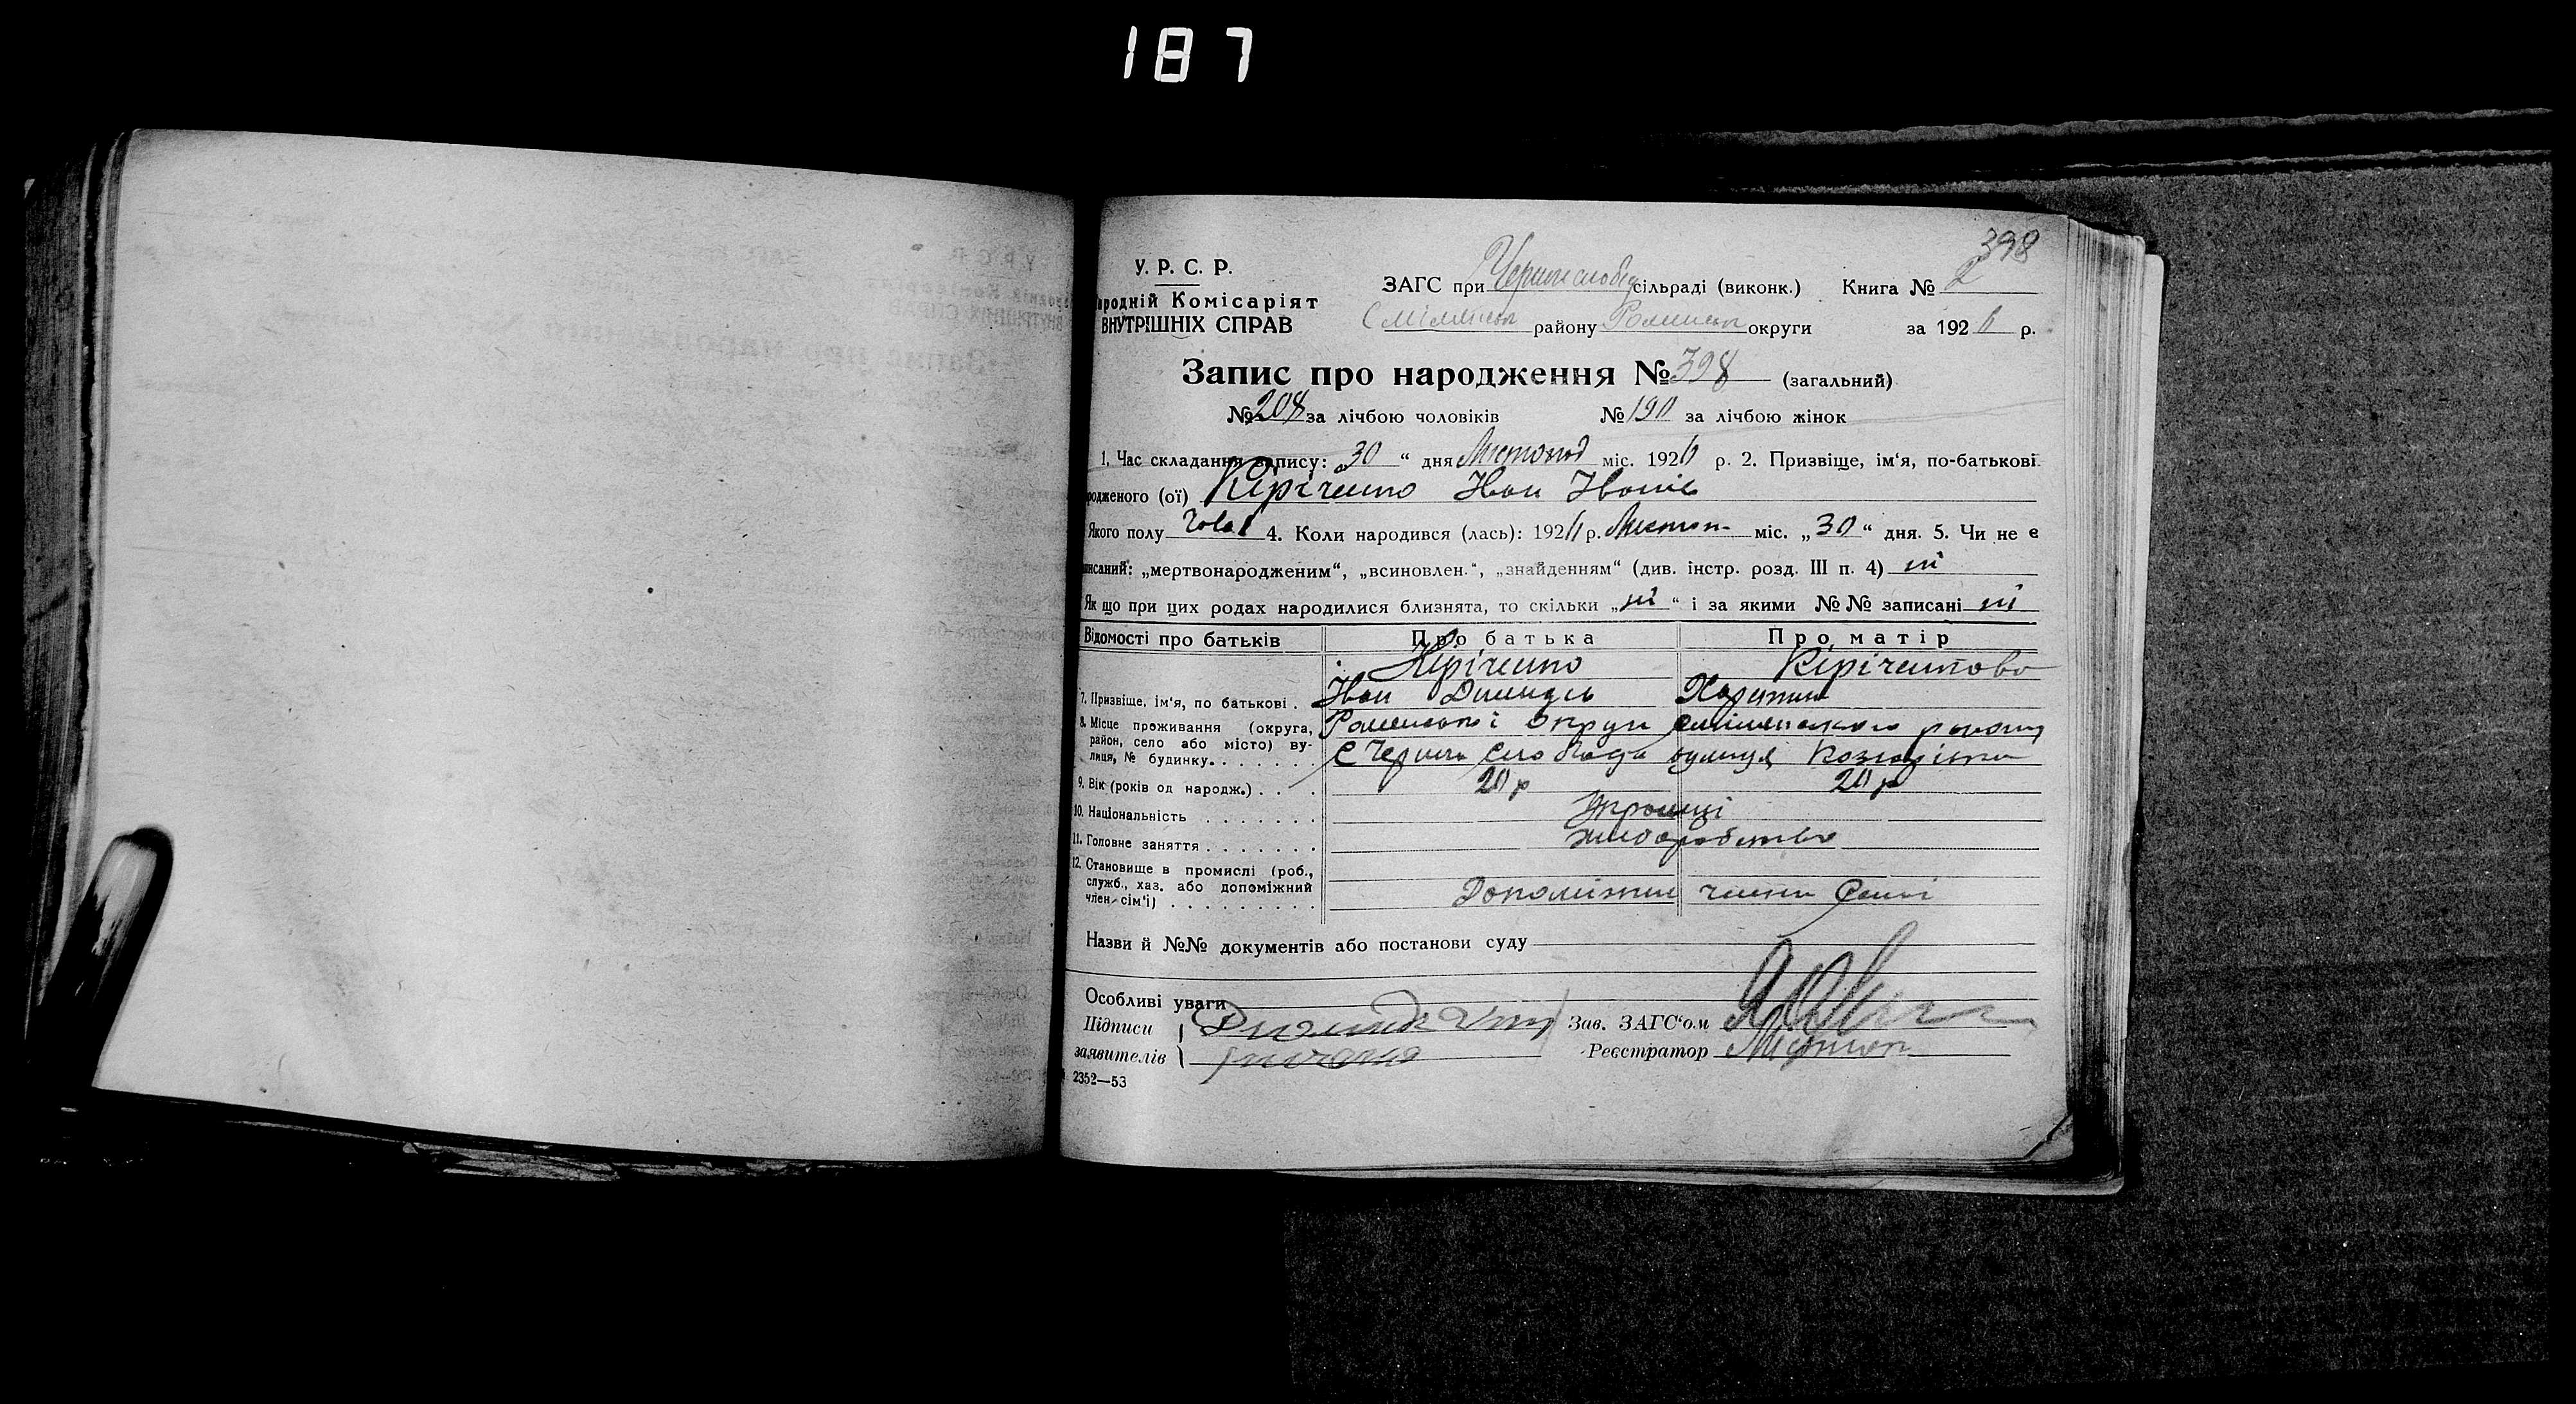 187
398
У. Р. С. Р.
ЗАГС при Чернослобод сільраді (виконк.) Книга № 2
ародній Комісаріят
ВНУТРІШНІХ СПРАВ
Смілянськ району Роменськ округи за 1926 р.
Запис про народження № 398 (загальний)
№ 208 за лічбою чоловіків № 190 за лічбою жінок
1. Час складання запису: „30“ дня Листопад міс. 1926 р. 2. Призвіще, ім‘я, по-батькові
родженого (ої) Кіріченко Іван Іванів
Якого полу чолов 4. Коли народився (лась): 1926 р. Листоп. міс. „30“ дня. 5. Чи не є
писаний: „мертвонародженим“, „всиновлен.“, „знайденням“ (див. інстр. розд. III п. 4) ні
Як що при цих родах народилися близнята, то скільки „ні“ і за якими №№ записані ні
Відомості про батьків Про батька Про матір
Кіріченко Кіріченкова
7. Призвіще, ім‘я, по батькові . Іван
8. Місце проживання (округа, район, село або місто) вулиця, № будинку. Роменської округи Смілянського району
С Черна Слобода вулиця
9. Вік (років од народж.) . . . 20 р 20 р
10. Національність . . . . . . . Українці
11. Головне заняття . . . . . . . хліборобство
12. Становище в промислі (роб., служб., хаз. або допоміжний член сім‘ї) . . . . . . . . . Допоміжни члени сімї
Назви й №№ документів або постанови суду
Особливі уваги
Підписи
заявителів
Зав. ЗАГС‘ом
Реєстратор
2352—53